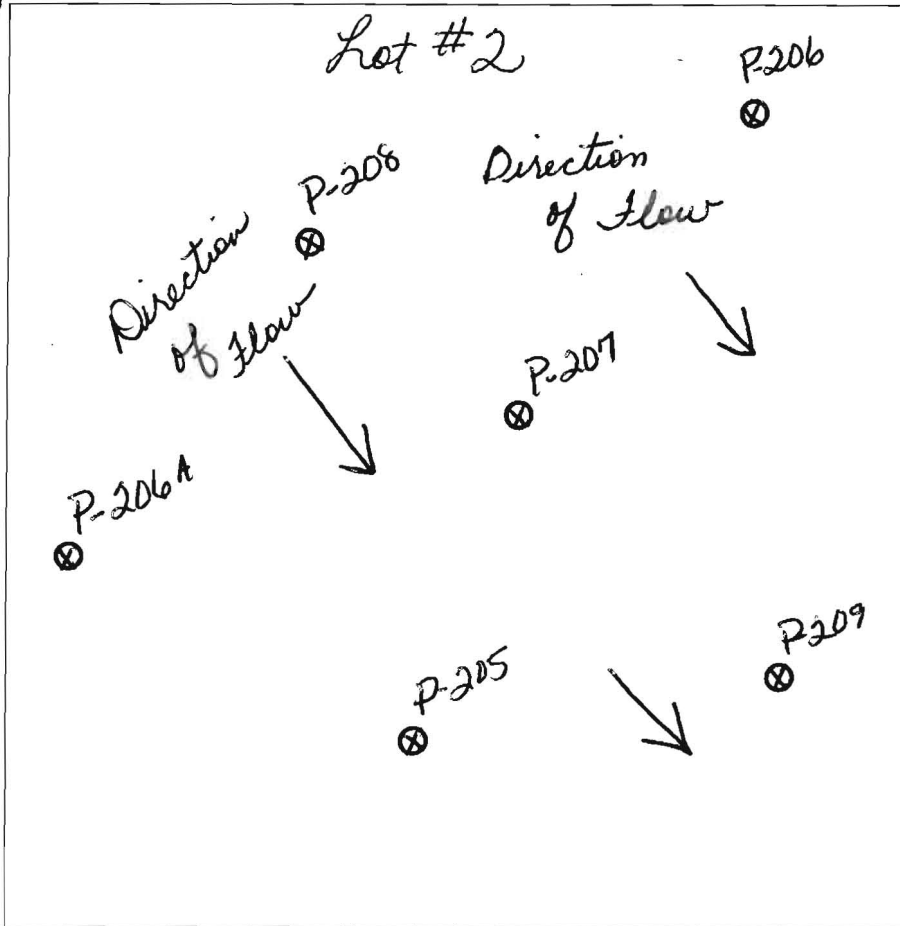 Lot #2
P-206
P-208
Direction
of Flow
Direction
of Flow
P-207
P-206A
P-209
P-205